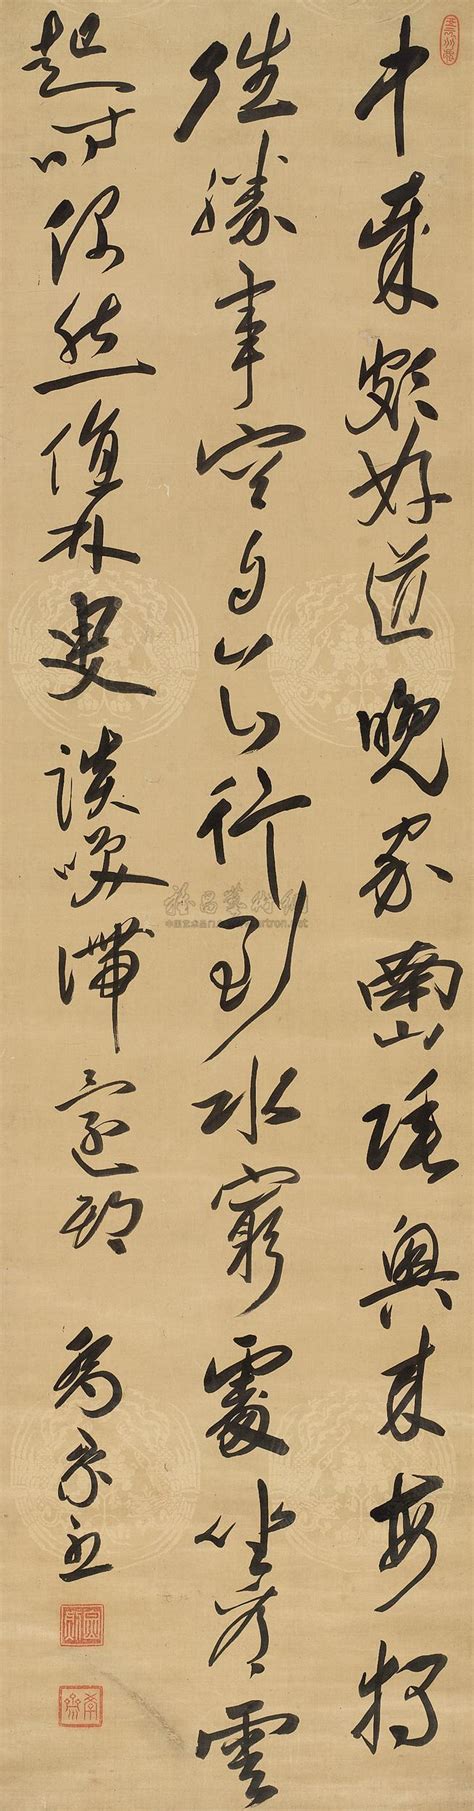 中歲頗好道晚家南山陲興來每獨
往勝事空自知行到水窮處坐看雲
起時偶然值林叟談咲滯還期
雅昌藝術網